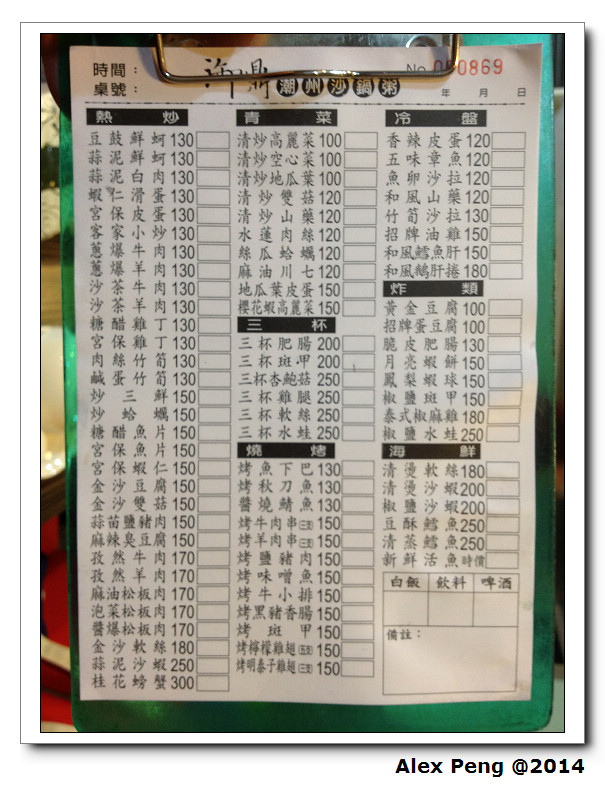 時間：
桌號：
許鼎 潮州沙鍋粥
No 050869
年 月 日
熱炒
豆鼓鮮蚵130
蒜泥鮮蚵130
蒜泥白肉130
蝦仁滑蛋130
宮保皮蛋130
客家小炒130
蔥爆牛肉130
蔥爆羊肉130
沙茶牛肉130
沙茶羊肉130
糖醋雞丁130
宮保雞丁130
肉絲竹筍130
鹹蛋竹筍130
炒三鮮150
炒蛤蠣150
糖醋魚片150
宮保魚片150
宮保蝦仁150
金沙豆腐150
金沙雙菇150
蒜苗鹽豬肉150
麻辣臭豆腐150
孜然牛肉170
孜然羊肉170
麻油松板肉170
泡菜松板肉170
醬爆松板肉170
金沙軟絲180
蒜泥沙蝦250
桂花螃蟹300
青菜
清炒高麗菜100
清炒空心菜100
清炒地瓜葉100
清炒雙菇120
清炒山藥120
水蓮肉絲120
絲瓜蛤蠣120
麻油川七120
地瓜葉皮蛋150
櫻花蝦高麗菜150
三杯
三杯肥腸200
三杯斑甲200
三杯杏鮑菇250
三杯雞腿250
三杯軟絲250
三杯水蛙250
燒烤
烤魚下巴130
烤秋刀魚130
醬燒鯖魚130
烤牛肉串(三支)150
烤羊肉串(三支)150
烤鹽豬肉150
烤味噌魚150
烤牛小排150
烤黑豬香腸150
烤斑甲150
烤檸檬雞翅(五支)150
烤明泰子雞翅(三支)150
冷盤
香辣皮蛋120
五味章魚120
魚卵沙拉120
和風山藥120
竹筍沙拉130
招牌油雞150
和風鱈魚肝150
和風鵝肝捲180
炸類
黃金豆腐100
招牌蛋豆腐100
脆皮肥腸130
月亮蝦餅150
鳳梨蝦球150
椒鹽斑甲150
泰式椒麻雞180
椒鹽水蛙250
海鮮
清燙軟絲180
清燙沙蝦200
椒鹽沙蝦200
豆酥鱈魚250
清蒸鱈魚250
新鮮活魚時價
白飯 飲料 啤酒
備註：
Alex Peng @2014